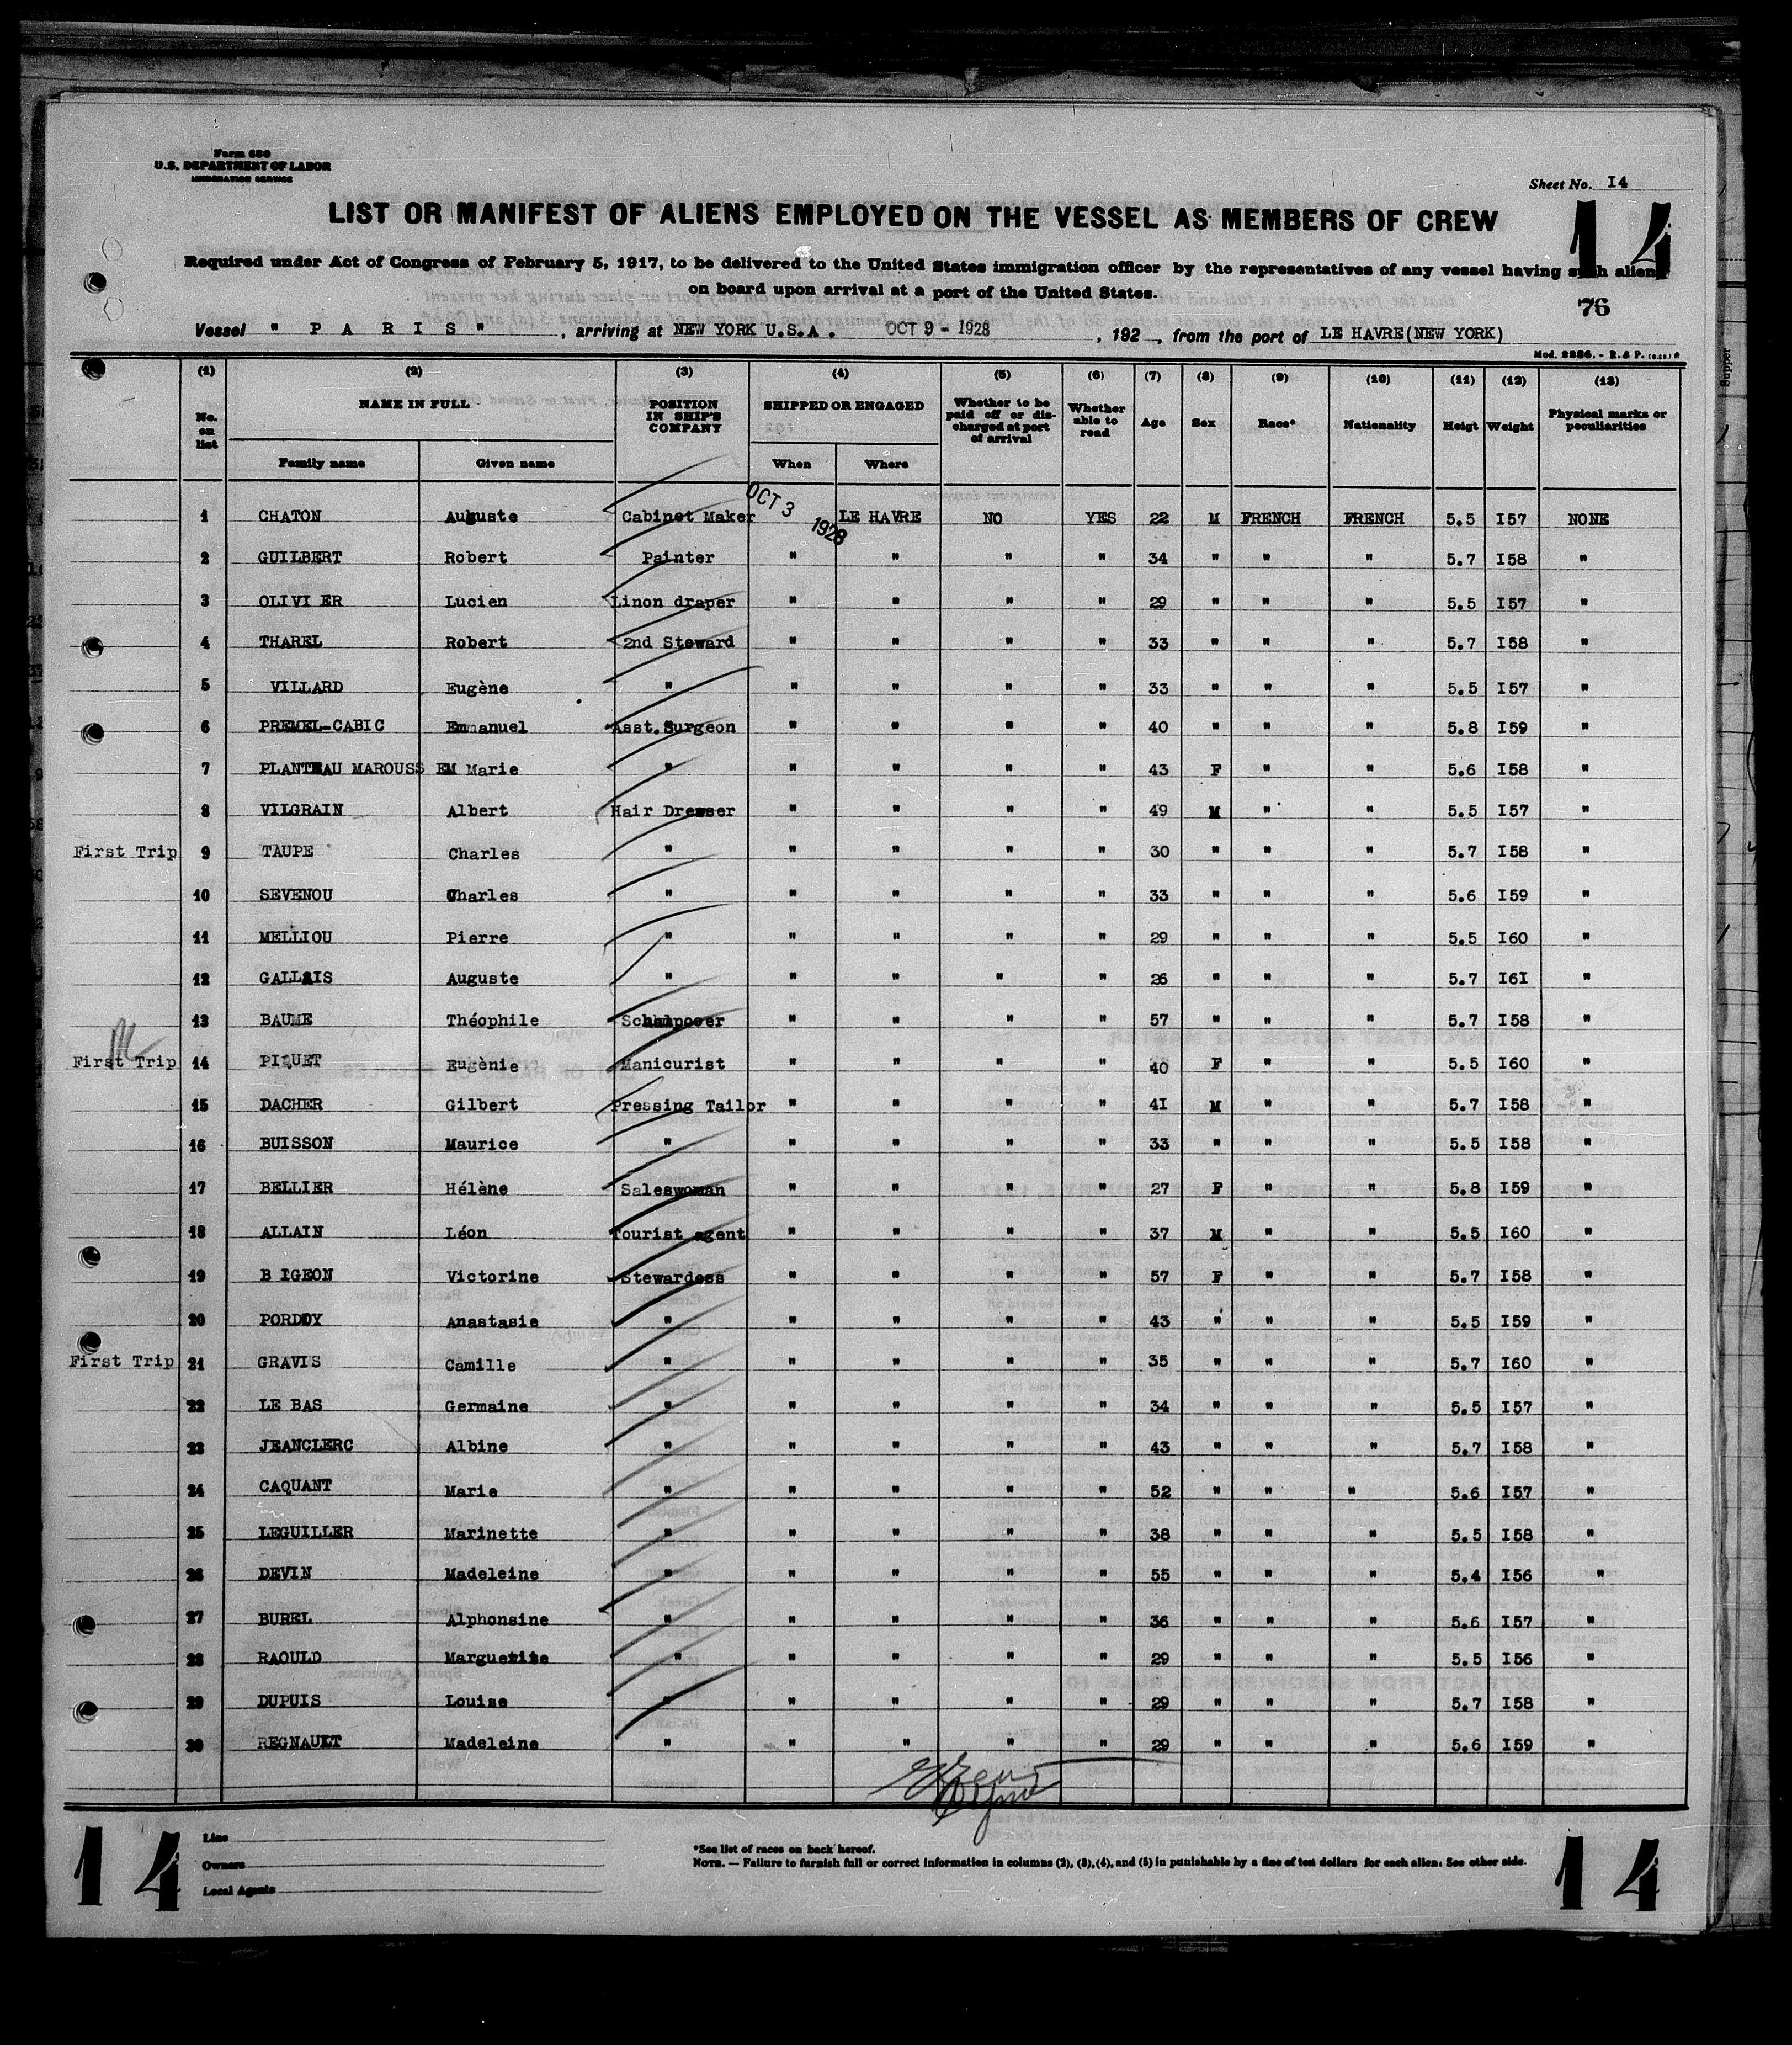 Form 680
U.S. DEPARTMENT OF LABOR
IMMIGRATION SERVICE
Sheet No. I4
LIST OR MANIFEST OF ALIENS EMPLOYED ON THE VESSEL AS MEMBERS OF CREW
14
Required under Act of Congress of February 5, 1917, to be delivered to the United States immigration officer by the representatives of any vessel having such aliens
on board upon arrival at a port of the United States.
76
Vessel " P A R I S " , arriving at NEW YORK U.S.A. OCT 9 - 1928 , 192 , from the port of LE HAVRE(NEW YORK)
Mod. 2226. - R. & P.
(1) (2) (3) (4) (5) (6) (7) (8) (9) (10) (11) (12) (13)
No. on list NAME IN FULL POSITION IN SHIP'S COMPANY SHIPPED OR ENGAGED Whether to be paid off or discharged at port of arrival Whether able to read Age Sex Race* Nationality Heigt Weight Physical marks or peculiarities
Family name Given name When Where
1 CHATON Auguste Cabinet Maker OCT 3 1928 LE HAVRE NO YES 22 M FRENCH FRENCH 5.5 I57 NONE
2 GUILBERT Robert Painter " " " " 34 " " " 5.7 I58 "
3 OLIVI ER Lucien Linon draper " " " " 29 " " " 5.5 I57 "
4 THAREL Robert 2nd Steward " " " " 33 " " " 5.7 I58 "
5 VILLARD Eugène " " " " " 33 " " " 5.5 I57 "
6 PREMEL-CABIC Emmanuel Asst.Surgeon " " " " 40 " " " 5.8 I59 "
7 PLANTEAU MAROUSS EM Marie " " " " " 43 F " " 5.6 I58 "
8 VILGRAIN Albert Hair Dresser " " " " 49 M " " 5.5 I57 "
First Trip 9 TAUPE Charles " " " " " 30 " " " 5.7 I58 "
10 SEVENOU Charles " " " " " 33 " " " 5.6 I59 "
11 MELLIOU Pierre " " " " " 29 " " " 5.5 I60 "
12 GALLAIS Auguste " " " " " 26 " " " 5.7 I6I "
13 BAUME Théophile " " " " 57 " " " 5.7 I58 "
First Trip 14 PIQUET Eugènie Manicurist " " " " 40 F " " 5.5 I60 "
15 DACHER Gilbert Pressing Tailor " " " " 4I M " " 5.7 I58 "
16 BUISSON Maurice " " " " " 33 " " " 5.5 I58 "
17 BELLIER Hélène Saleswoman " " " " 27 F " " 5.8 I59 "
18 ALLAIN Léon Tourist agent " " " " 37 M " " 5.5 I60 "
19 B IGEON Victorine Stewardess " " " " 57 F " " 5.7 I58 "
20 PORDOY Anastasie " " " " " 43 " " " 5.5 I59 "
First Trip 21 GRAVIS Camille " " " " " 35 " " " 5.7 I60 "
22 LE BAS Germaine " " " " " 34 " " " 5.5 I57 "
23 JEANCLERC Albine " " " " " 43 " " " 5.7 I58 "
24 CAQUANT Marie " " " " " 52 " " " 5.6 I57 "
25 LEGUILLER Marinette " " " " " 38 " " " 5.5 I58 "
26 DEVIN Madeleine " " " " " 55 " " " 5.4 I56 "
27 BUREL Alphonsine " " " " " 36 " " " 5.6 I57 "
28 RAOULD Marguerite " " " " " 29 " " " 5.5 I56 "
29 DUPUIS Louise " " " " " 29 " " " 5.7 I58 "
30 REGNAULT Madeleine " " " " " 29 " " " 5.6 I59 "
14 14
Line
Owners
Local Agents
*See list of races on back hereof.
NOTE. — Failure to furnish full or correct information in columns (2), (3), (4), and (5) in punishable by a fine of ten dollars for each alien. See other side.
Supper